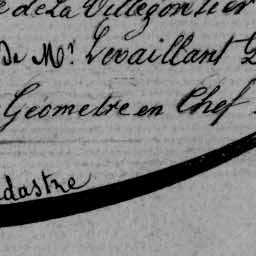 de La Villegontier
De Mr. Levaillant
Géometre en Chef
dastre